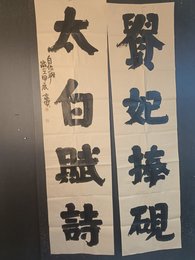 貴妃捧硯
太白賦詩